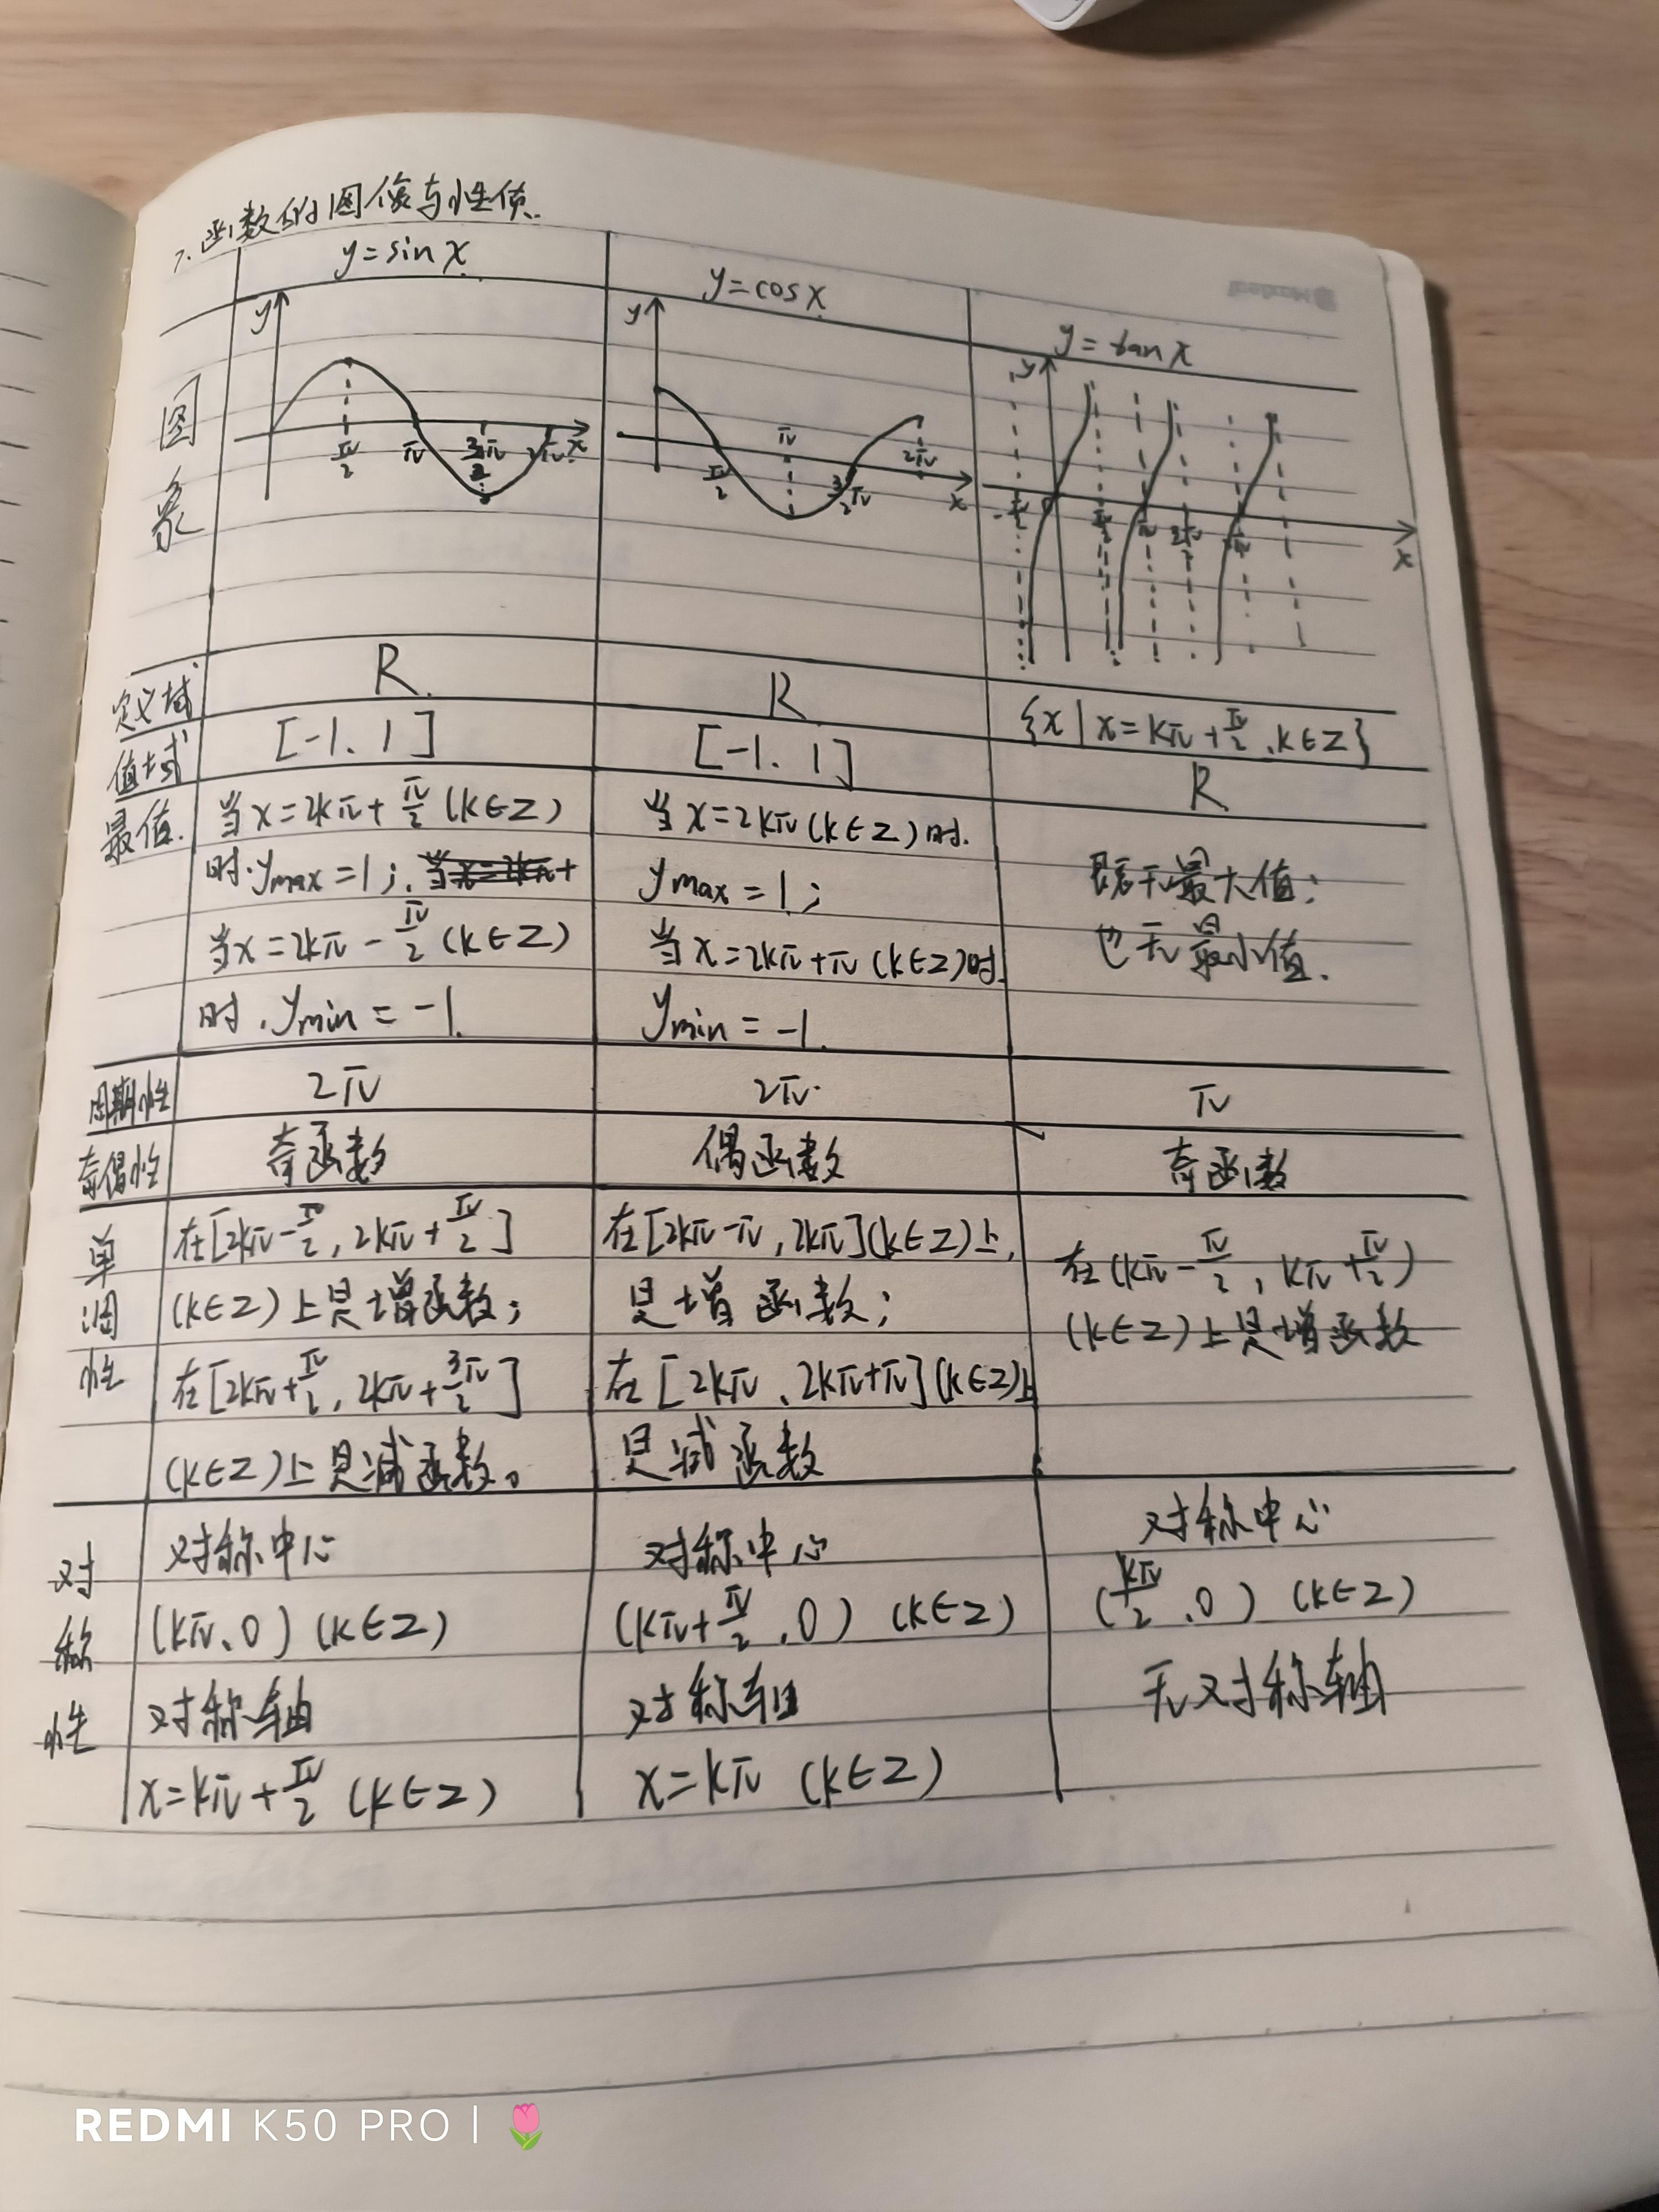 7. 函数的图像与性质.
y=sinx
y=cosx
y=tanx
图象
y
π/2
π
3/2π
2π
x
y
π/2
π
3/2π
2π
x
y
-π/2
0
π/2
π
3π/2
2π
x
定义域
R
R
{x|x=kπ+π/2,k∈Z}
值域
[-1.1]
[-1.1]
R
最值.
当x=2kπ+π/2(k∈Z)
时.ymax=1;
当x=2kπ-π/2(k∈Z)
时.ymin=-1.
当x=2kπ(k∈Z)时.
ymax=1;
当x=2kπ+π(k∈Z)时.
ymin=-1.
既无最大值;
也无最小值.
周期性
2π
2π
π
奇偶性
奇函数
偶函数
奇函数
单调性
在[2kπ-π/2,2kπ+π/2]
(k∈Z)上是增函数;
在[2kπ+π/2,2kπ+3/2π]
(k∈Z)上是减函数。
在[2kπ-π,2kπ](k∈Z)上,
是增函数;
在[2kπ、2kπ+π](k∈Z)上
是减函数
在(kπ-π/2,kπ+π/2)
(k∈Z)上是增函数
对称性
对称中心
(kπ、0)(k∈Z)
对称轴
x=kπ+π/2(k∈Z)
对称中心
(kπ+π/2.0)(k∈Z)
对称轴
x=kπ(k∈Z)
对称中心
(kπ/2.0)(k∈Z)
无对称轴
REDMI K50 PRO |